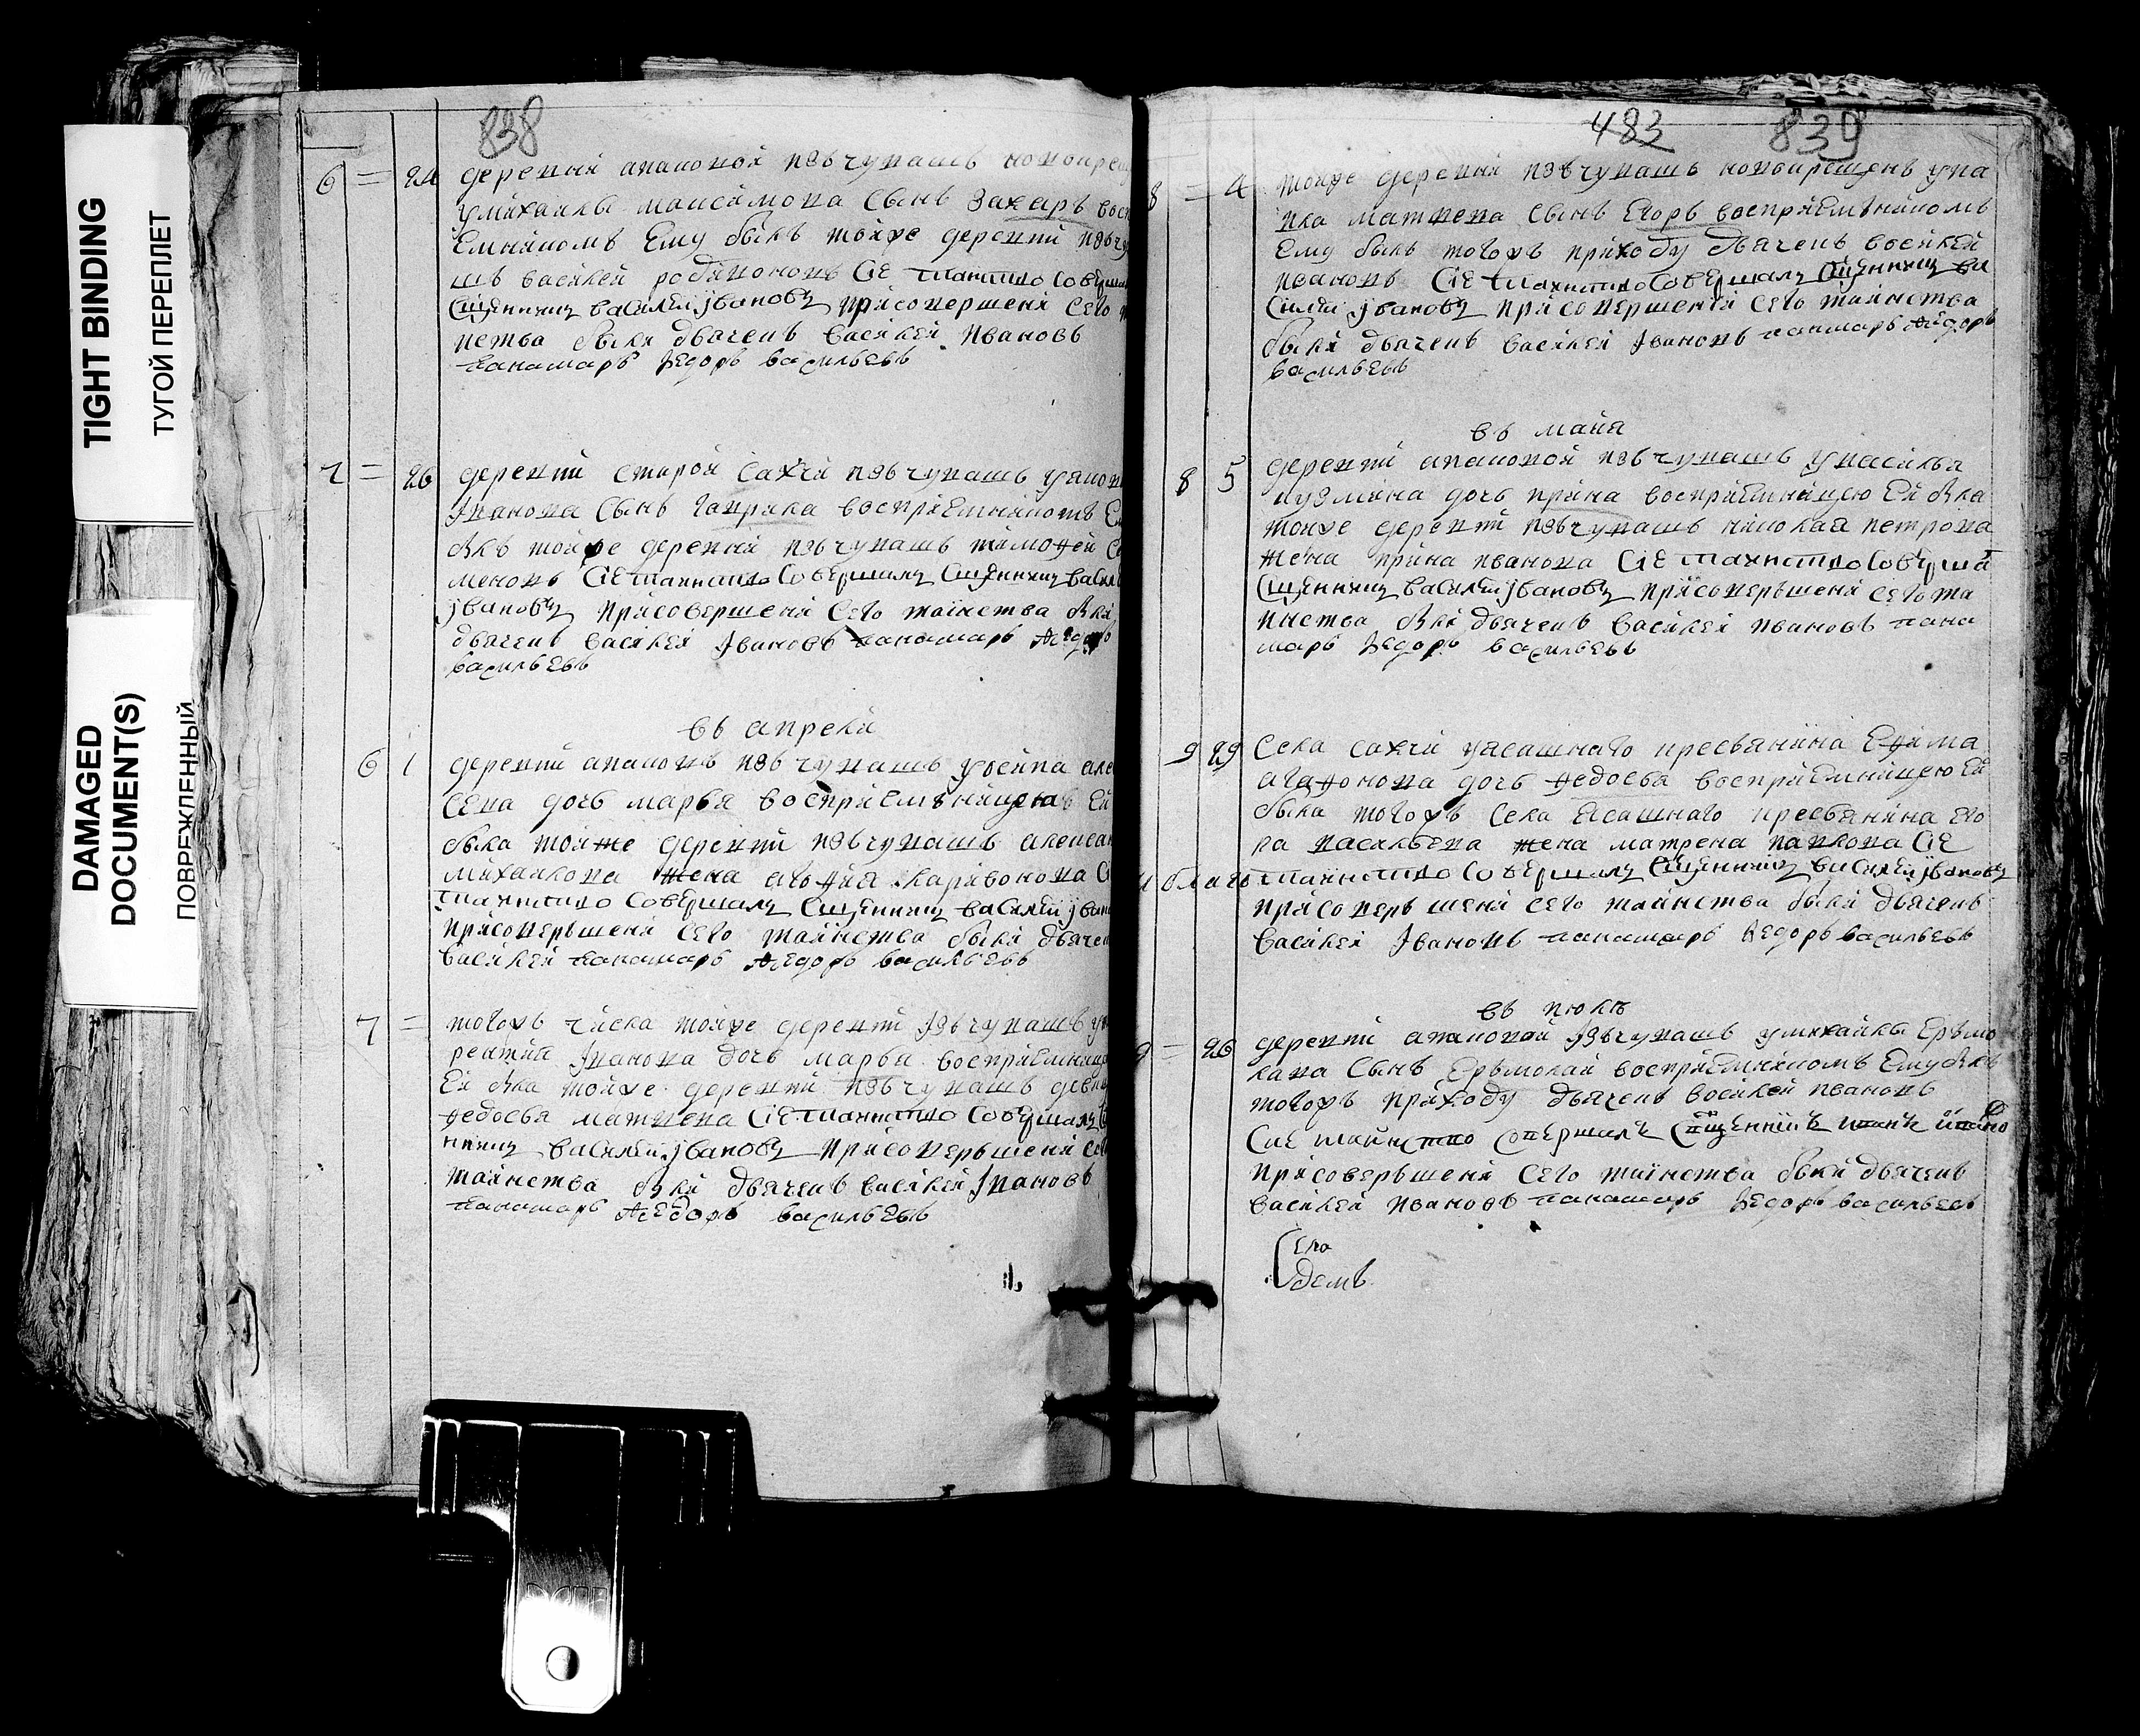 TIGHT BINDING
ТУГОЙ ПЕРЕПЛЕТ
DAMAGED
DOCUMENT(S)
ПОВРЕЖДЕННЫЙ
838
6 = 24 деревни апаковой извчувашъ новокрещ
умихаилы максимова сынъ захаръ восп
емникомъ ему былъ тойже деревни извчу
шъ василей родионовъ сіе таинство соверша
сщенникъ василей ивановъ присовершени сего
нства были дьячекъ василей ивановъ
панамарь федоръ васильевъ
7 = 26 деревни старой сахчи извчувашъ уяков
иванова сынъ гаврила восприемникомъ е
былъ тойже деревни извчувашъ тимофей се
меновъ сіе таинство совершалъ сщенникъ васил
ивановъ присовершени сего таинства были
дьячекъ василей ивановъ панамарь федоръ
васильевъ
въ апрели
6 1 деревни апаковъ извчувашъ уосипа алек
сева дочь марья восприемницею ей
была тойже деревни извчувашъ алексан
михаилова жена агафия ларивонова сі
таинство совершалъ сщенникъ василей иван
присовершени сего таинства были дьячек
василей панамарь федоръ васильевъ
7 = тогожъ числа тойже деревни извчувашъ
рентия иванова дочь марья восприемниц
ей была тойже деревни извчувашъ девка
федосья матвева сіе таинство совершалъ
нникъ василей ивановъ присовершени се
таинства были дьячекъ василей ивановъ
панамарь федоръ васильевъ
483 839
8 = 4 тойже деревни извчувашъ новокрещенъ уива
ика матвева сынъ егоръ восприемникомъ
ему былъ тогожъ приходу дьячекъ василей
ивановъ сіе таинство совершалъ сщенникъ ва
силей ивановъ присовершения сего таинства
были дьячекъ василей ивановъ панамарь федоръ
васильевъ
въ маия
8 5 деревни апаковой извчувашъ увасилья
кузмина дочь ирина восприемницею ей была
тойже деревни извчувашъ николая петрова
жена ирина иванова сіе таинство соверша
сщенникъ василей ивановъ присовершени сего та
инства были дьячекъ василей ивановъ пана
марь федоръ васильевъ
9 29 села сахчи уясашнаго кресьянина ефима
агафонова дочь федосья восприемницею ей
была тогожъ села ясашнаго кресьянина его
ра васильева жена матрена павлова сіе
таинство совершалъ сщенникъ василей ивановъ
присовершени сего таинства были дьячекъ
василей ивановъ панамарь федоръ васильевъ
въ июлъ
9 = 26 деревни апаковай извчувашъ умихайлы ермо
лава сынъ ермолай восприемникомъ ему былъ
тогожъ приходу дьячекъ василей ивановъ
сие таинство совершалъ сщенникъ
присовершени сего таинства были дьячекъ
василей ивановъ панамарь федоръ васильевъ